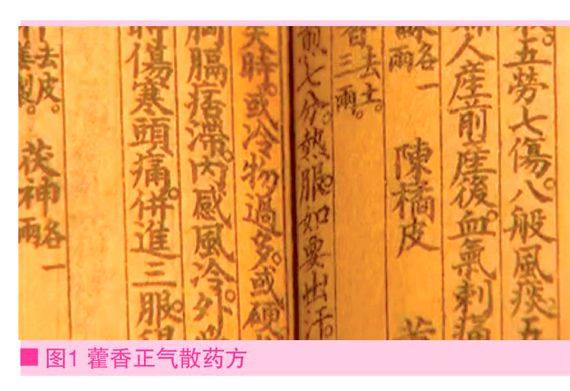 五勞七傷。八般風痰。五
人産前産後血氣刺痛
各一
兩
陳橘皮
去土。
三兩。
煎七分。熱服。如要出汗。
天時。或冷物過多。或硬
胸膈痞滯。內感風冷。外
時傷寒頭痛。併進三服。得
去皮。
茯神各一
兩
图1 藿香正气散药方